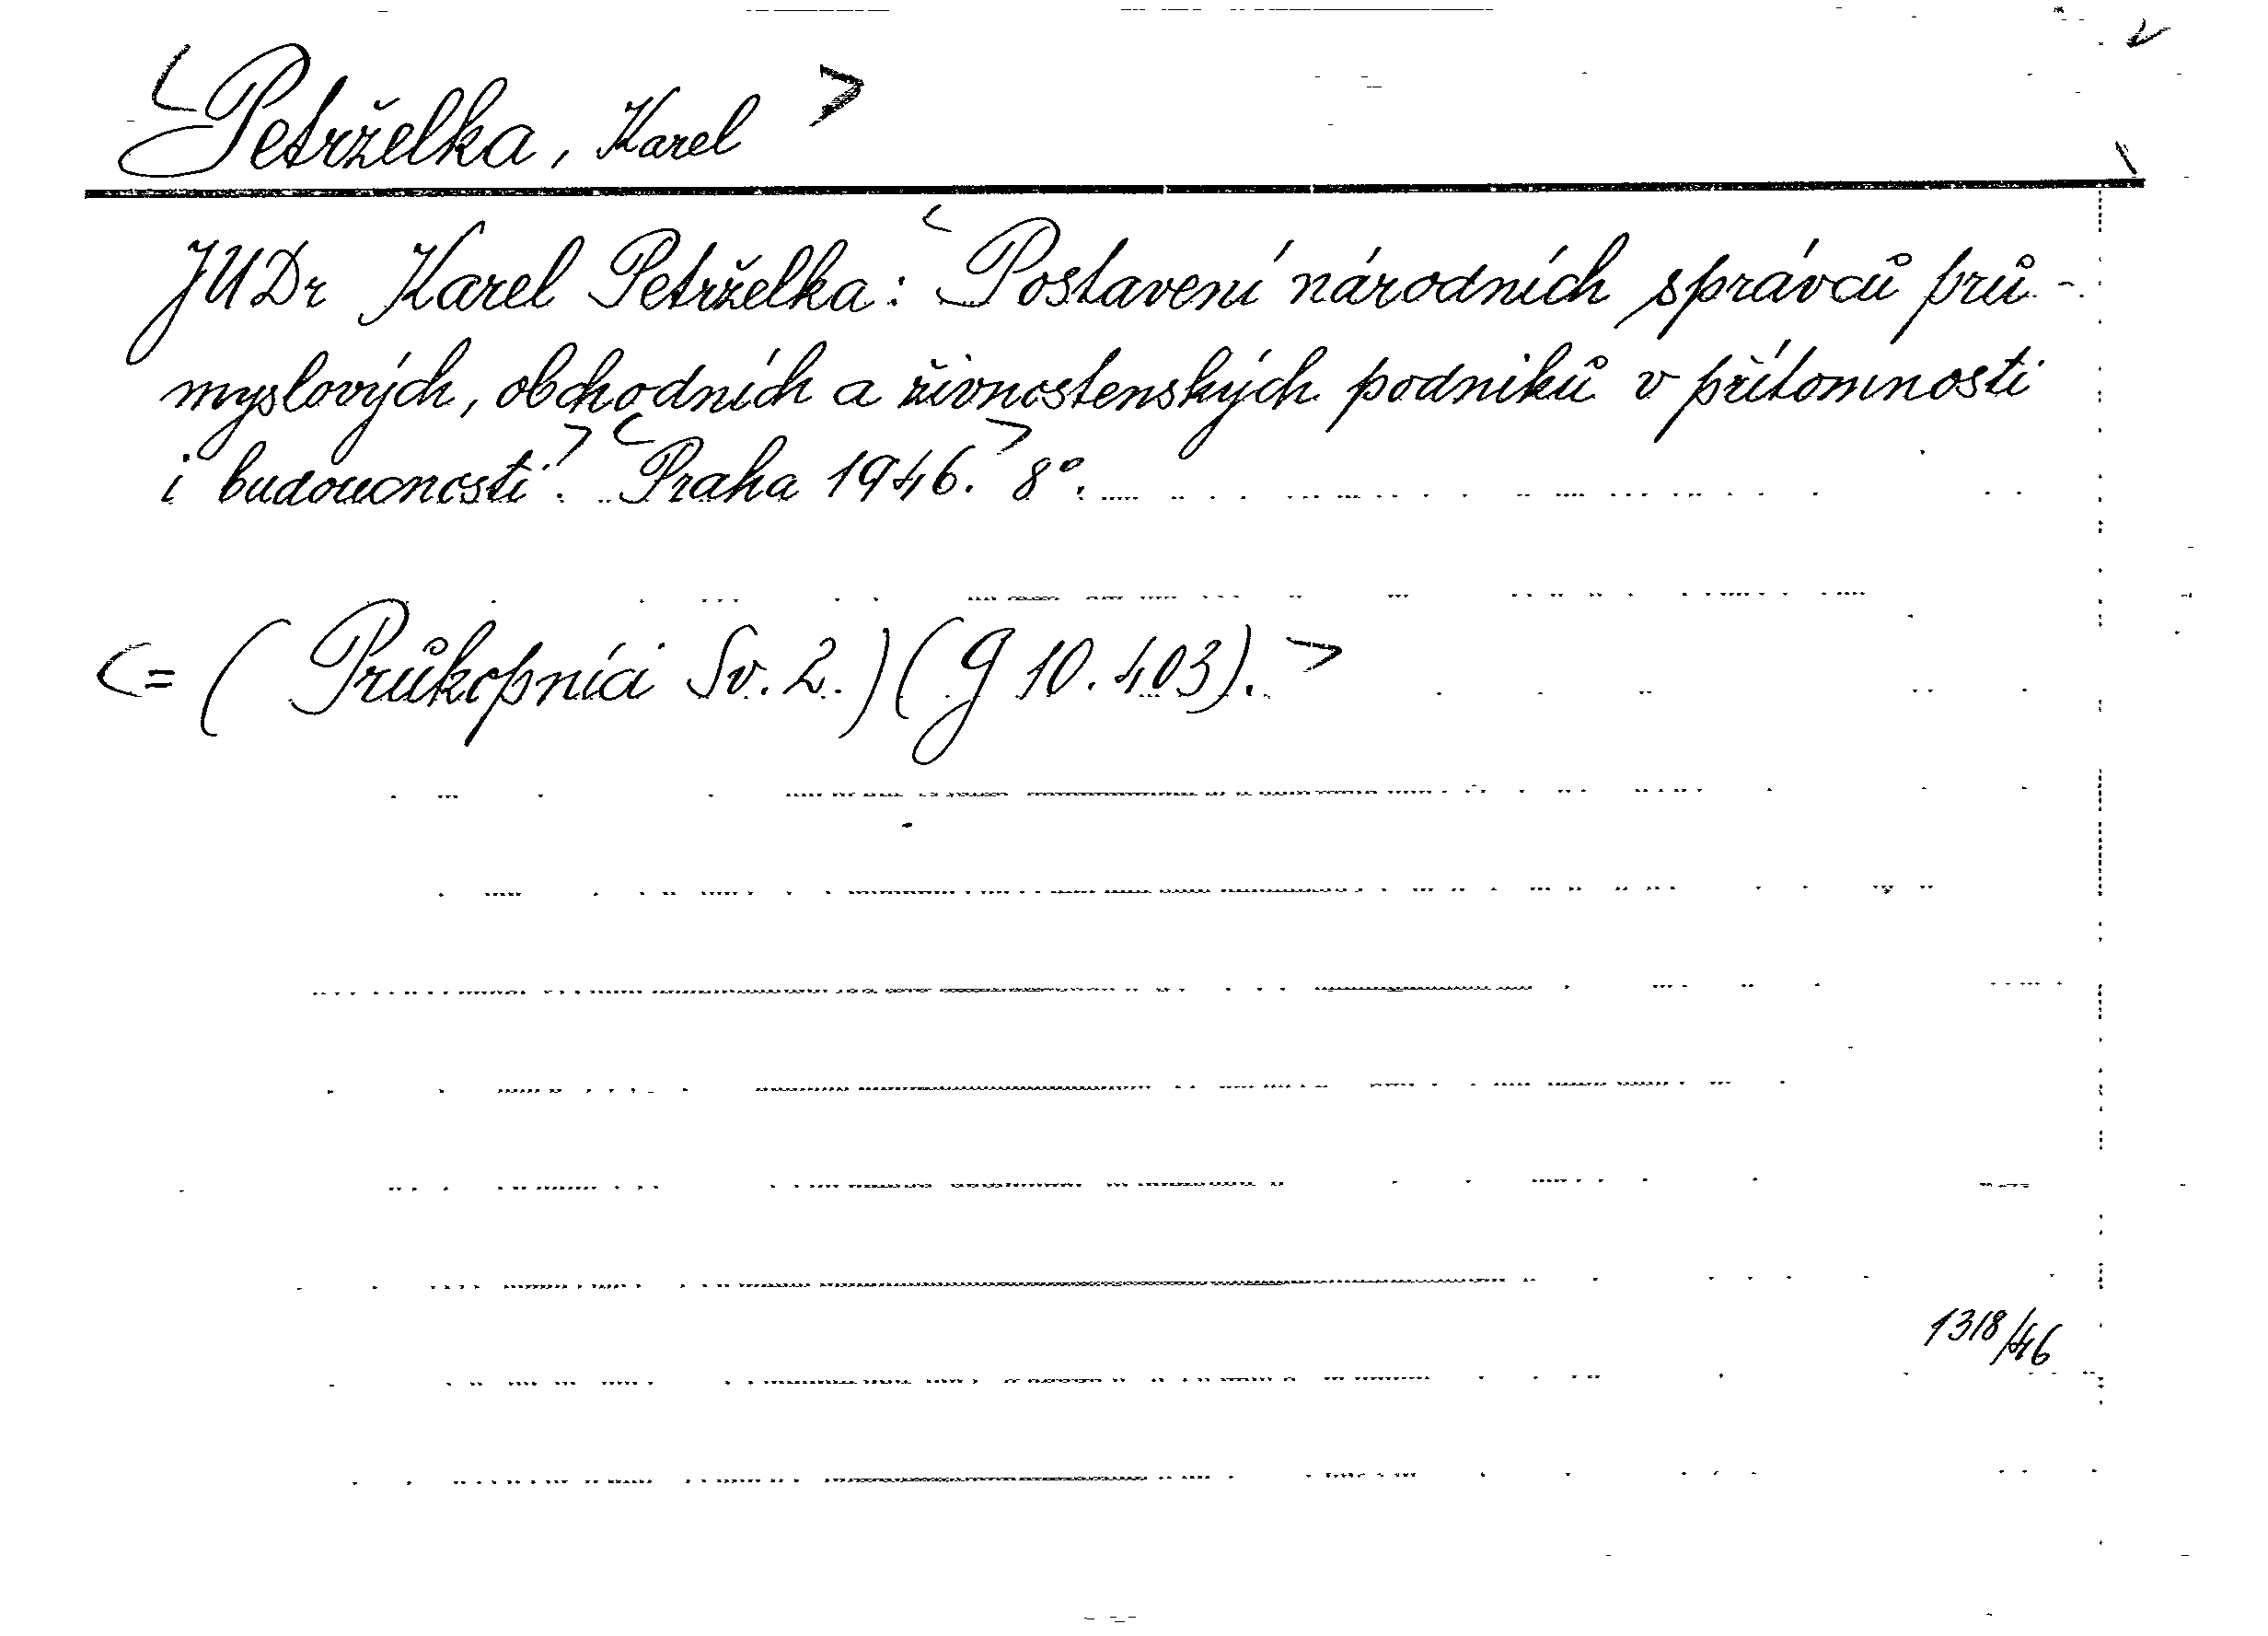 <Petrželka, Karel>
JUDr Karel Petrželka: <Postavení národních správců prů-
myslových, obchodních a živnostenských podniků v přítomnosti
i budoucnosti>. <Praha 1946.> 8°.
<= (Průkopníci Sv. 2.) (G 10.403).>
1318/46